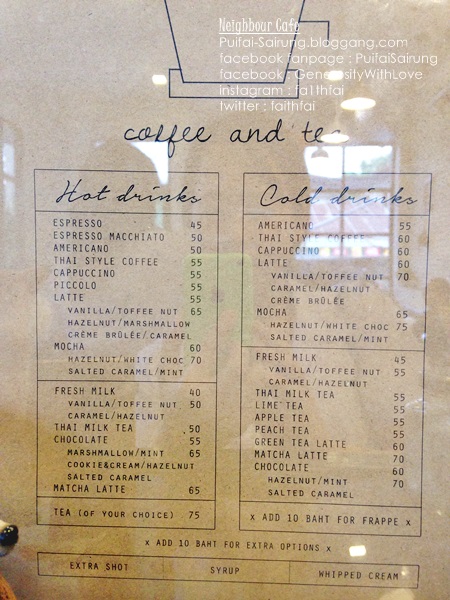 Neighbour Cafe
Puifai-Sairung.bloggang.com
facebook fanpage : PuifaiSairung
facebook : GenerosityWithLove
instagram : fa1thfai
twitter : faithfai
coffee and tea
Hot drinks
ESPRESSO 45
ESPRESSO MACCHIATO 50
AMERICANO 50
THAI STYLE COFFEE 55
CAPPUCCINO 55
PICCOLO 55
LATTE 55
VANILLA/TOFFEE NUT 65
HAZELNUT/MARSHMALLOW
CRÈME BRÛLÉE/CARAMEL
MOCHA 60
HAZELNUT/WHITE CHOC 70
SALTED CARAMEL/MINT
FRESH MILK 40
VANILLA/TOFFEE NUT 50
CARAMEL/HAZELNUT
THAI MILK TEA 50
CHOCOLATE 55
MARSHMALLOW/MINT 65
COOKIE&CREAM/HAZELNUT
SALTED CARAMEL
MATCHA LATTE 65
TEA (OF YOUR CHOICE) 75
Cold drinks
AMERICANO 55
THAI STYLE COFFEE 60
CAPPUCCINO 60
LATTE 60
VANILLA/TOFFEE NUT 70
CARAMEL/HAZELNUT
CRÈME BRÛLÉE
MOCHA 65
HAZELNUT/WHITE CHOC 75
SALTED CARAMEL/MINT
FRESH MILK 45
VANILLA/TOFFEE NUT 55
CARAMEL/HAZELNUT
THAI MILK TEA 55
LIME TEA 55
APPLE TEA 55
PEACH TEA 55
GREEN TEA LATTE 60
MATCHA LATTE 70
CHOCOLATE 60
HAZELNUT/MINT 70
SALTED CARAMEL
x ADD 10 BAHT FOR FRAPPE x
x ADD 10 BAHT FOR EXTRA OPTIONS x
EXTRA SHOT SYRUP WHIPPED CREAM